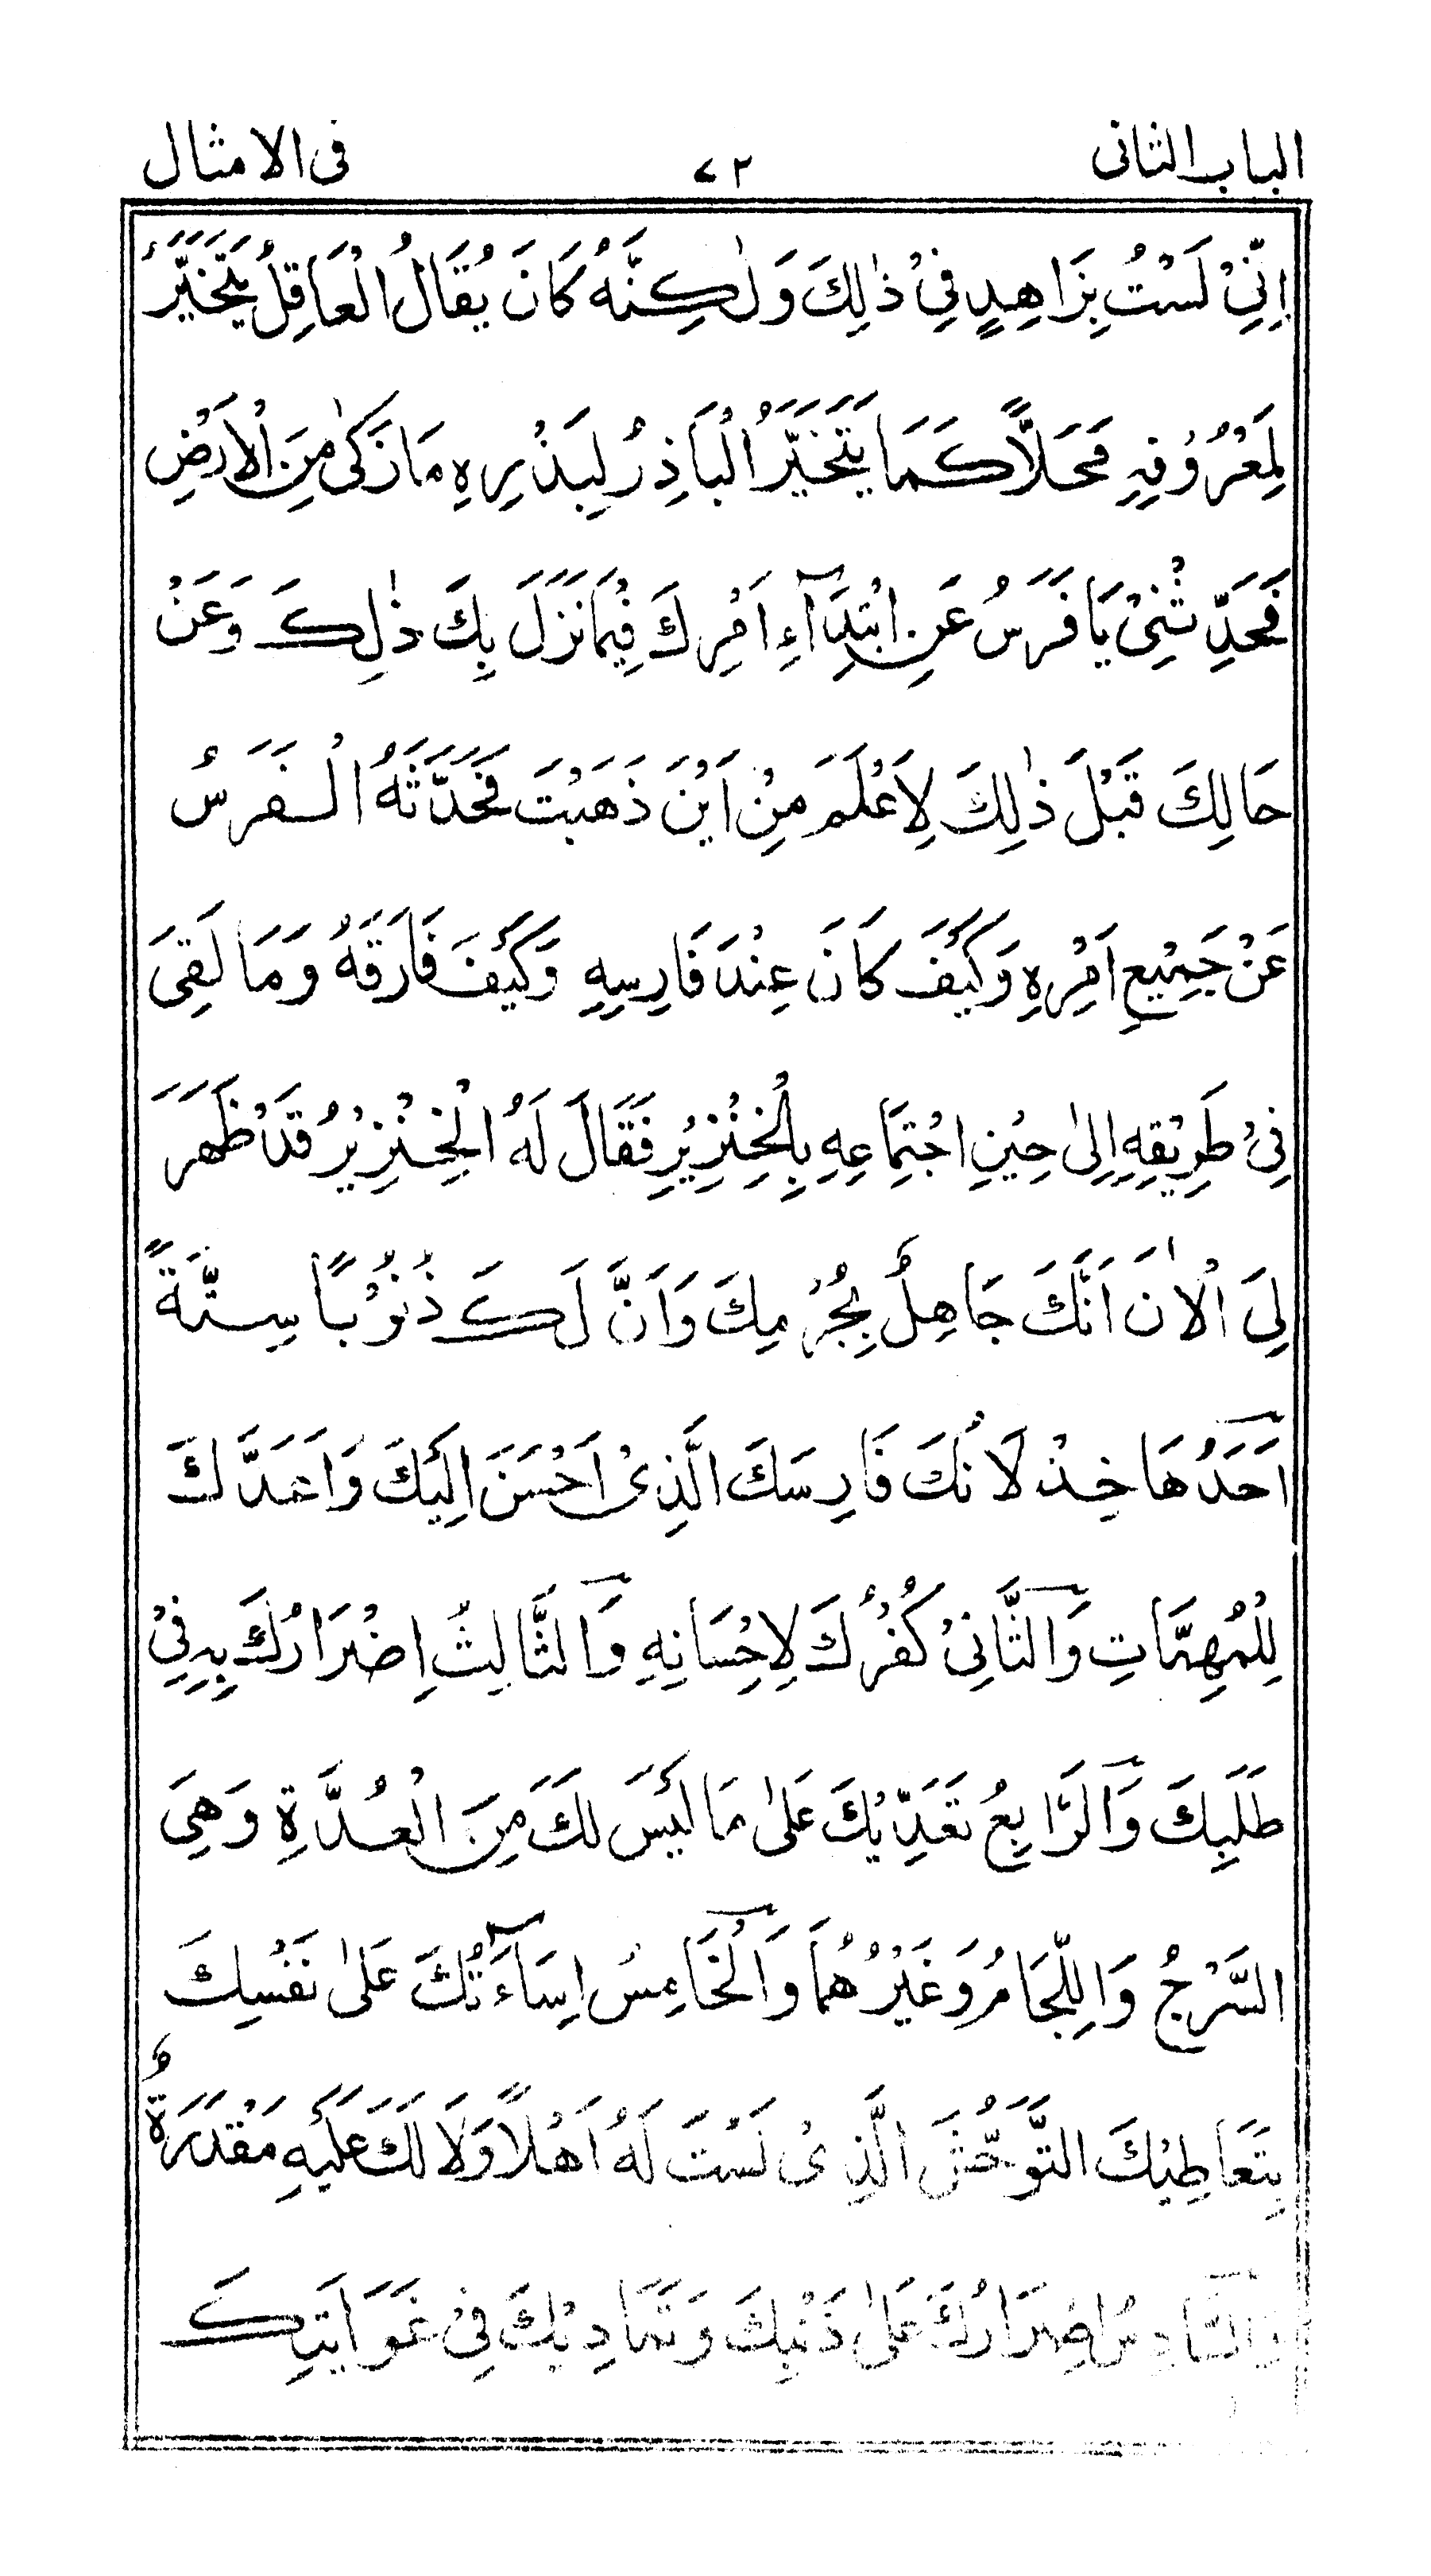 الباب الثانى ٧٢ فى الامثال
اِنِّىْ لَسْتُ بِزَاهِدٍ فِىْ ذٰلِكَ وَلٰكِنَّهُ كَانَ يُقَالُ الْعَاقِلُ يَتَخَيَّرُ
لِمَعْرُوْفِهٖ مَحَلًّا كَمَا يَتَخَيَّرُ الْبَاذِرُ لِبَذْرِهٖ مَا زَكٰى مِنَ الْاَرْضِ
فَحَدِّثْنِىْ يَا فَرَسُ عَنِ ابْتِدَآءِ اَمْرِكَ فِيْمَا نَزَلَ بِكَ ذٰلِكَ وَعَنْ
حَالِكَ قَبْلَ ذٰلِكَ لِاَعْلَمَ مِنْ اَيْنَ ذَهَبْتَ فَحَدَّثَهُ الْفَرَسُ
عَنْ جَمِيْعِ اَمْرِهٖ وَكَيْفَ كَانَ عِنْدَ فَارِسِهٖ وَكَيْفَ فَارَقَهُ وَمَا لَقِىَ
فِىْ طَرِيْقِهٖ اِلٰى حِيْنِ اجْتِمَاعِهٖ بِالْخِنْزِيْرِ فَقَالَ لَهُ الْخِنْزِيْرُ قَدْ ظَهَرَ
لِىَ الْاٰنَ اَنَّكَ جَاهِلٌ بِجُرْمِكَ وَاَنَّ لَكَ ذُنُوْبًا سِتَّةً
اَحَدُهَا خِذْلَانُكَ فَارِسَكَ الَّذِىْ اَحْسَنَ اِلَيْكَ وَاَعَدَّكَ
لِلْمُهِمَّاتِ وَالثَّانِىْ كُفْرُكَ لِاِحْسَانِهٖ وَالثَّالِثُ اِضْرَارُكَ بِهٖ فِىْ
طَلَبِكَ وَالرَّابِعُ تَعَدِّيْكَ عَلٰى مَا لَيْسَ لَكَ مِنَ الْعُدَّةِ وَهِىَ
السَّرْجُ وَاللِّجَامُ وَغَيْرُهُمَا وَالْخَامِسُ اِسَاءَتُكَ عَلٰى نَفْسِكَ
بِتَعَاطِيْكَ التَّوَحُّشَ الَّذِىْ لَسْتَ لَهُ اَهْلًا وَلَا لَكَ عَلَيْهِ مَقْدَرَةٌ
وَالسَّادِسُ اِصْرَارُكَ عَلٰى ذَنْبِكَ وَتَمَادِيْكَ فِىْ غَوَايَتِكَ